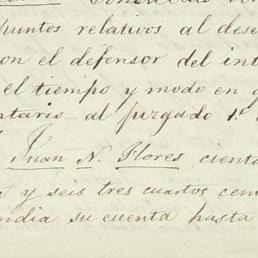 puntos relativos al dese
on el defensor del int
el tiempo y modo en q
ntario al juzgado 1º
Juan N. Flores cienta
y seis tres cuartos cen
ndia su cuenta hasta